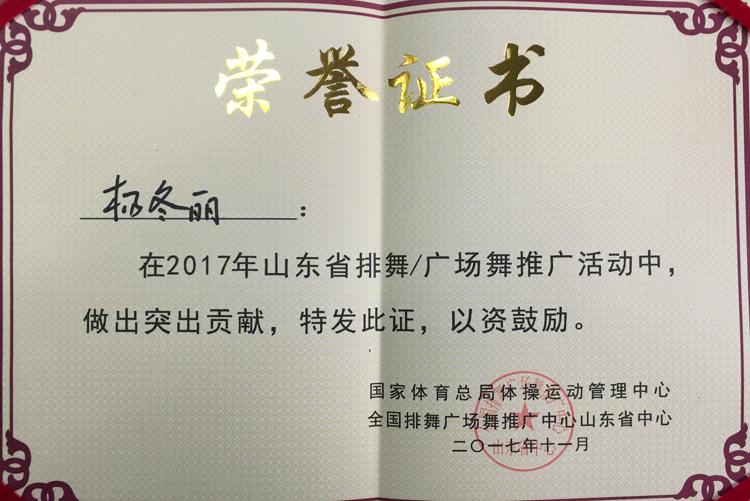 荣誉证书
杨冬丽：
在2017年山东省排舞/广场舞推广活动中，
做出突出贡献，特发此证，以资鼓励。
国家体育总局体操运动管理中心
全国排舞广场舞推广中心山东省中心
二〇一七年十一月
山东省中心